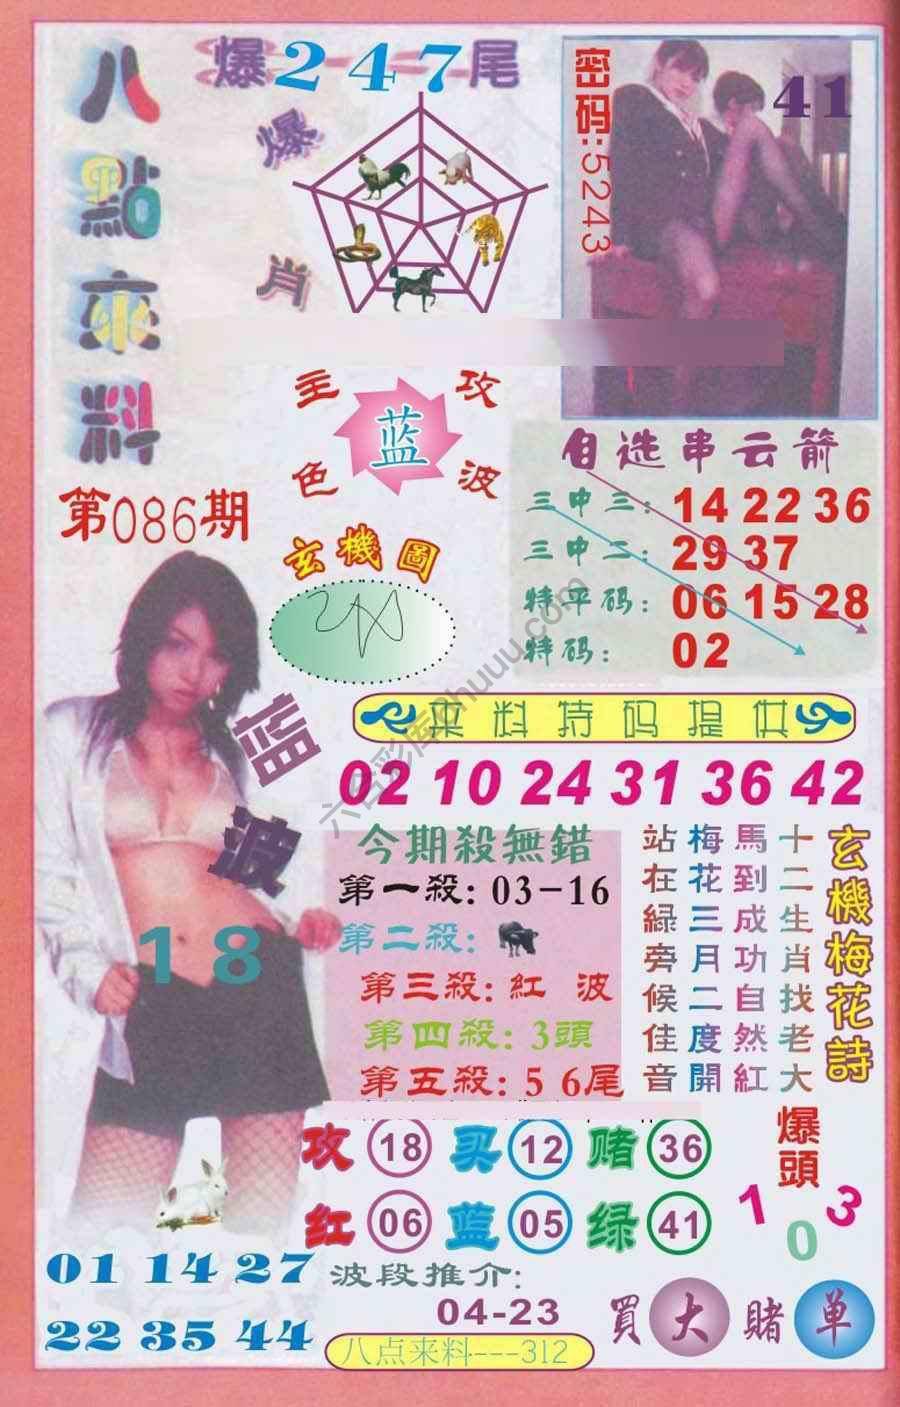 八點來料
爆247尾
爆肖
密码:5243
41
主攻
蓝
色波
第086期
玄機圖
自选串云箭
三中三: 14 22 36
三中二: 29 37
特平码: 06 15 28
特码: 02
六合彩库hhuuu.com
来料特码提供
02 10 24 31 36 42
蓝波
18
今期殺無錯
第一殺: 03-16
第二殺:
第三殺: 紅波
第四殺: 3頭
第五殺: 5 6尾
玄機梅花詩
十二生肖找老大
馬到成功自然紅
梅花三月二度開
站在綠旁候佳音
攻 18 买 12 赌 36
红 06 蓝 05 绿 41
爆頭
1 0 3
01 14 27
22 35 44
波段推介:
04-23
買大賭单
八点来料---312